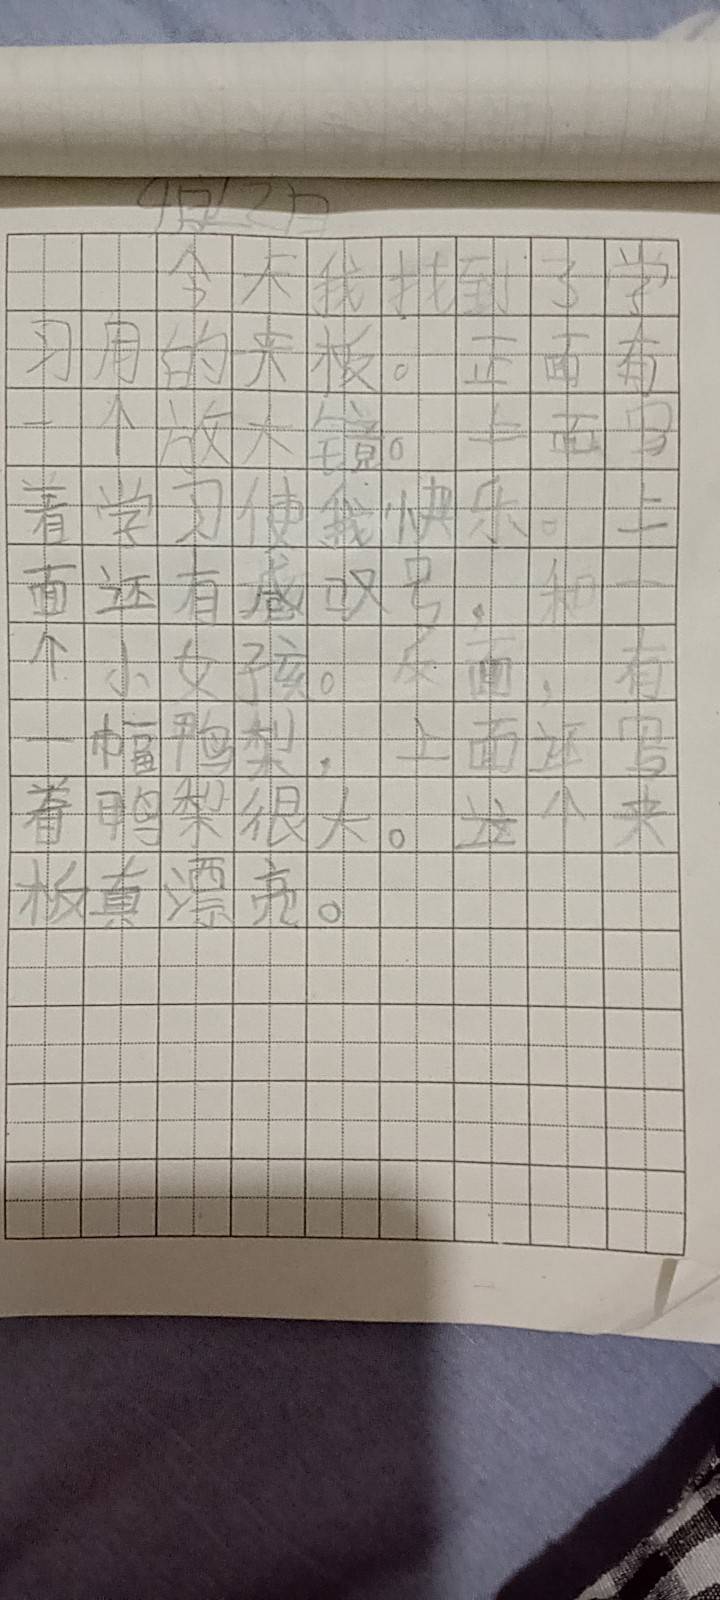 4月12日
今天我找到了学
习用的夹板。正面有
一个放大镜。上面写
着学习使我快乐。上
面还有感叹号，和一
个小女孩。反面，有
一幅鸭梨，上面还写
着鸭梨很大。这个夹
板真漂亮。